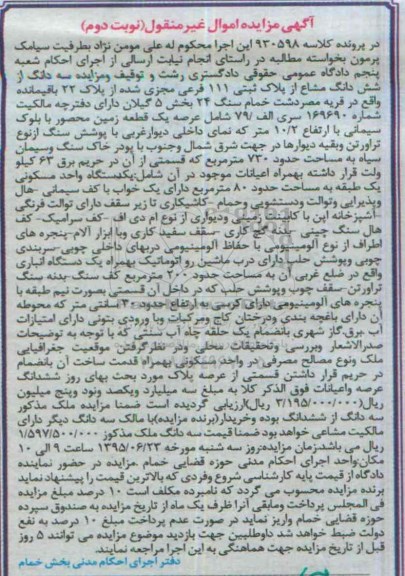 آگهی مزایده اموال غیر منقول(نوبت دوم)
در پرونده کلاسه ۹۳۰۵۹۸ این اجرا محکوم له علی مومن نژاد بطرفیت سیامک
پرمون بخواسته مطالبه در راستای انجام نیابت ارسالی از اجرای احکام شعبه
پنجم دادگاه عمومی حقوقی دادگستری رشت و توقیف ومزایده سه دانگ از
شش دانگ مشاع از پلاک ثبتی ۱۱۱ فرعی مجزی شده از پلاک ۲۲ باقیمانده
واقع در قریه مصردشت خمام سنگ ۲۴ بخش ۵ گیلان دارای دفترچه مالکیت
شماره ۱۶۹۶۹۰ سری الف /۷۹ شامل عرصه یک قطعه زمین محصور با بلوک
سیمانی با ارتفاع ۱۰/۲ متر که نمای داخلی دیوارغربی با پوشش سنگ ازنوع
تراورتن وبقیه دیوارها در جهت شرق شمال وجنوب با پودر خاک سنگ وسیمان
سیاه به مساحت حدود ۷۳۰ مترمربع که قسمتی از آن در حریم برق ۶۳ کیلو
ولت قرار داشته بهمراه اعیانات موجود در آن شامل:یکدستگاه واحد مسکونی
یک طبقه به مساحت حدود ۸۰ مترمربع دارای یک خواب با کف سیمانی -هال
وپذیرایی وتوالت ودستشویی وحمام -کاشیکاری تا زیر سقف دارای توالت فرنگی
-آشپزخانه اپن با کابینت زمینی ودیواری از نوع ام دی اف -کف سرامیک- کف
هال سنگ چینی -بدنه گچ کاری -سقف سفید کاری وبا ابزار آلام-پنجره های
اطراف از نوع آلومینیومی با حفاظ آلومینیومی دربهای داخلی چوبی-سربندی
چوبی وپوشش حلب دارای درب ماشین رو اتوماتیک بهمراه یک دستگاه انباری
واقع در ضلع غربی آن به مساحت حدود ۲۰۰ مترمربع کف سنگ-بدنه سنگ
تراورتن-سقف چوب وپوشش حلب که در داخل آن قسمتی بصورت نیم طبقه با
پنجره های آلومینیومی دارای کرسی به ارتفاع حدود ۳۰سانتی متر که محوطه
آن دارای باغچه بندی ودرختان کاج ومرکبات وبا ورودی بتونی دارای امتیازات
آب .برق.گاز شهری بانضمام یک حلقه چاه آب سنتی که با توجه به توضیحات
صدرالاشعار وبررسی وتحقیقات محلی ودر نظرگرفتن موقعیت جغرافیایی
ملک ونوع مصالح مصرفی در واحد مسکونی بهمراه قدمت ساخت آن بانضمام
در حریم قرار داشتن قسمتی از عرصه پلاک مورد بحث بهای روز ششدانگ
عرصه واعیانات فوق الذکر کلا به مبلغ سه میلیارد ویکصد ونود وپنج میلیون
ریال(۳/۱۹۵/۰۰۰/۰۰۰ ریال)ارزیابی گردیده است ضمنا مزایده ملک مذکور
سه دانگ از ششدانگ بوده وخریدار(برنده مزایده)با مالک سه دانگ دیگر دارای
مالکیت مشاعی خواهد بود ضمنا قیمت سه دانگ ملک مذکور ۱/۵۹۷/۵۰۰/۰۰۰
ریال می باشدزمان مزایده:روز سه شنبه مورخه ۱۳۹۵/۰۶/۲۳ ساعت ۹ الی ۱۰
مکان:واحد اجرای احکام مدنی حوزه قضایی خمام .مزایده در حضور نماینده
دادگاه از قیمت پایه کارشناسی شروع وفردی که بالاترین قیمت را پیشنهاد نماید
برنده مزایده محسوب می گردد که نامبرده مکلف است ۱۰ درصد مبلغ مزایده
فی المجلس پرداخت ومابقی آنرا ظرف یک ماه از تاریخ مزایده به صندوق سپرده
حوزه قضایی خمام واریز نماید در صورت عدم پرداخت مبلغ ۱۰ درصد به نفع
دولت ضبط خواهد شد داوطلبین جهت بازدید موضوع مزایده می توانند ۵ روز
قبل از تاریخ مزایده جهت هماهنگی به این اجرا مراجعه نمایند.
دفتر اجرای احکام مدنی بخش خمام